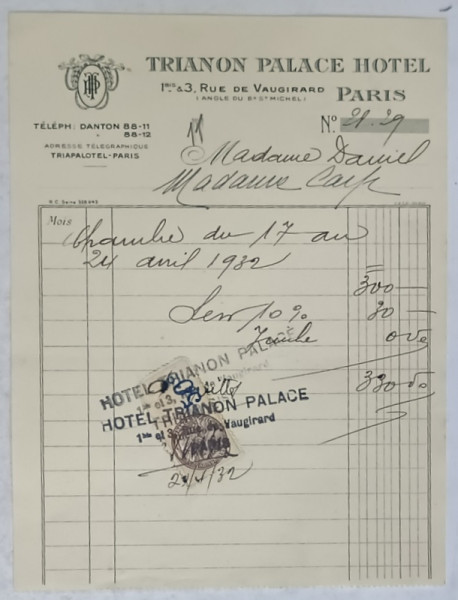 TRIANON PALACE HOTEL
1bis & 3, RUE DE VAUGIRARD
(ANGLE DU Bd St MICHEL)
PARIS
TÉLÉPH: DANTON 88-11
88-12
ADRESSE TÉLÉGRAPHIQUE
TRIAPALOTEL-PARIS
No. 28.29
Madame Daniel
Madame
R.C. Seine
Mois
Chambre du 17 au
24 avril 1932
300 —
Serv 10% 30 —
Timbre 0 50
HOTEL TRIANON PALACE
1bis et 3, Rue de Vaugirard
330 50
HOTEL TRIANON PALACE
1bis et 3, Rue de Vaugirard
PARIS